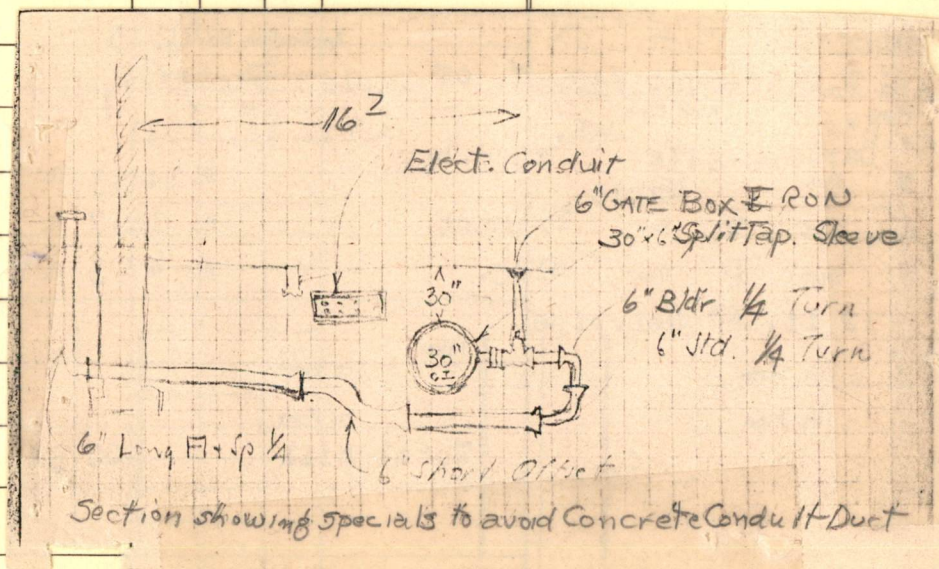 16²
Elect. Conduit
6" GATE BOX & RON
30"x6" Split Tap. Sleeve
30"
6" Bldr ¼ Turn
6" Std. ¼ Turn
30"
C.I.
6" Long Fl + Sp ¼
6" Short Offset
Section showing specials to avoid Concrete Conduit Duct